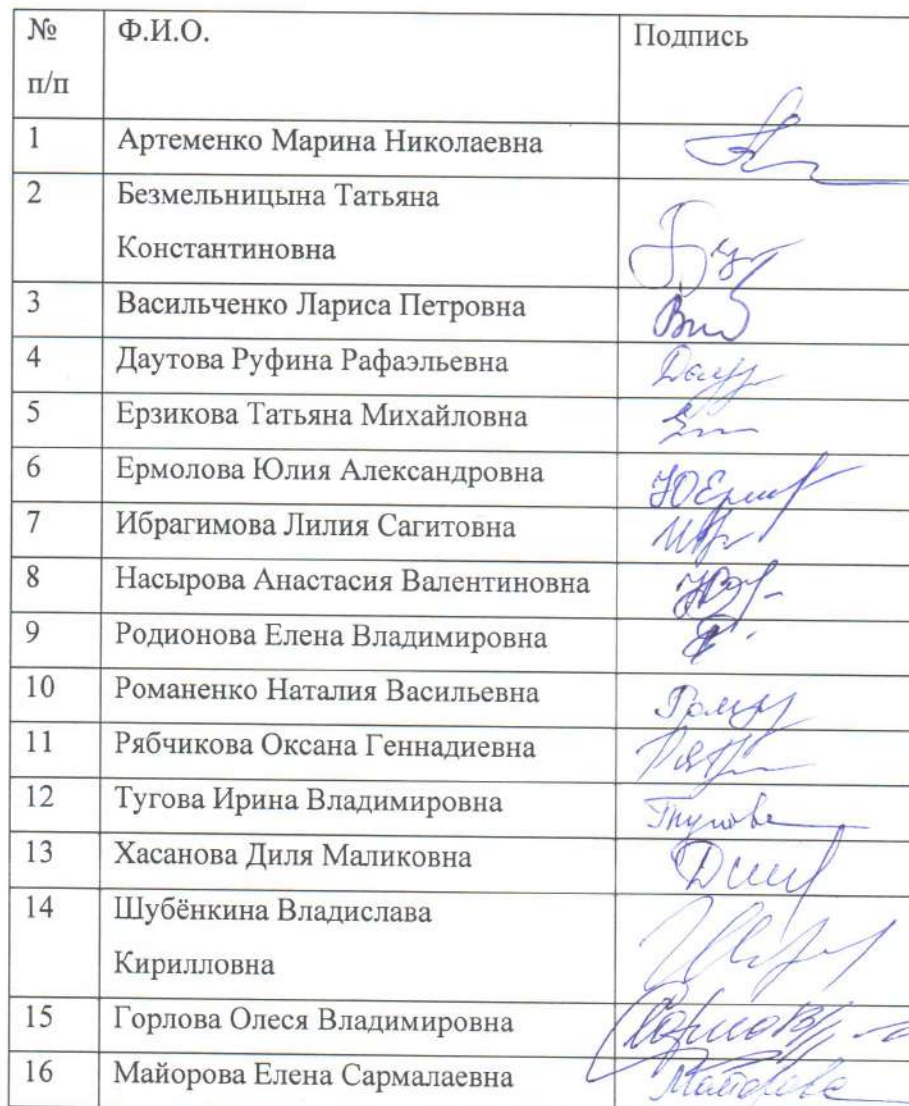 № Ф.И.О. Подпись
п/п
1 Артеменко Марина Николаевна
2 Безмельницына Татьяна
Константиновна
3 Васильченко Лариса Петровна
4 Даутова Руфина Рафаэльевна
5 Ерзикова Татьяна Михайловна
6 Ермолова Юлия Александровна
7 Ибрагимова Лилия Сагитовна
8 Насырова Анастасия Валентиновна
9 Родионова Елена Владимировна
10 Романенко Наталия Васильевна
11 Рябчикова Оксана Геннадиевна
12 Тугова Ирина Владимировна
13 Хасанова Диля Маликовна
14 Шубёнкина Владислава
Кирилловна
15 Горлова Олеся Владимировна
16 Майорова Елена Сармалаевна